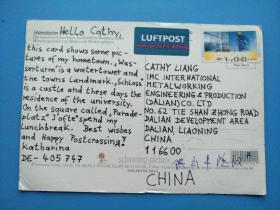 Mannheim
Hello Cathy,
this card shows some pic-
tures of my hometown. "Was-
serturm" is a watertower and
the towns Landmark, "Schloss"
is a castle and these days the
residence of the university.
On the square called "Parade-
platz" I ofte spend my
Lunchbreak. Best wishes
and Happy Postcrossing!
Katharina
DE-405747
LUFTPOST
CATHY LIANG
IMC INTERNATIONAL
METALWORKING
ENGINEERING & PRODUCTION
(DALIAN) CO. LTD
NO. 62 TIE SHAN ZHONG ROAD
DALIAN DEVELOPMENT AREA
DALIAN, LIAONING
CHINA
116600
CHINA